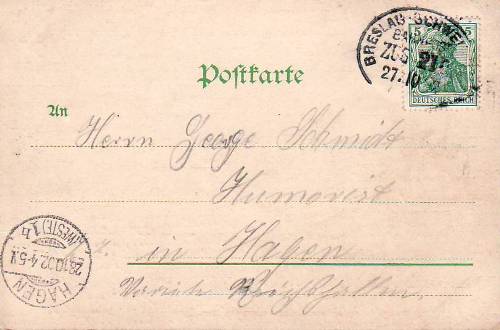 BRESLAU-SCHWEI
BAHN
ZUG 21
27.10
5
DEUTSCHES REICH
Postkarte
An
Herrn George Schmidt
Humorist
z. in Hagen
Varieté Reichshallen.
HAGEN
(WESTF.) 1 h
28.10.02.4-5.N